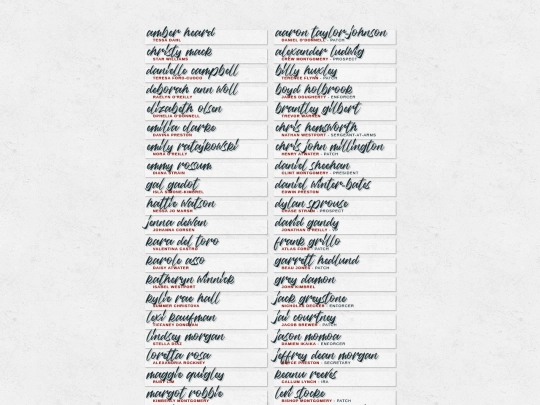 amber heard
TESSA DAHL
christy mack
STAR WILLIAMS
danielle campbell
TERESA FORD-CUOCO
deborah ann woll
RAELYN O'REILLY
elizabeth olsen
ORNELIA O'DONNELL
emilia clarke
DAVINA PRESTON
emily ratajkowski
NORA O'REILLY
emmy rossum
DIANA STRAIN
gal gadot
ISLA SIMONE-KIMBREL
hattie watson
NESSA JO MARSH
jenna dewan
JOHANNA CORSEN
kara del toro
VALENTINA CASTRO
karole asso
DAISY ATWATER
katheryn winnick
ISABEL WESTPORT
kylie rae hall
SUMMER CHRISTOVA
lexi kaufman
TIFFANEY DONOVAN
lindsey morgan
STELLA DIAZ
loretta rosa
ALEXANDRIA ROCKNEY
maggie quigley
RUBY LIM
margot robbie
KIMBERLY MONTGOMERY
aaron taylor-johnson
DANIEL O'DONNELL - PATCH
alexander ludwig
CREW MONTGOMERY - PROSPECT
billy huxley
TERRENCE FLYNN - PATCH
boyd holbrook
JAMES DOUGHERTY - ENFORCER
brantley gilbert
TREVOR WARREN
chris hemsworth
NATHAN WESTPORT - SERGEANT-AT-ARMS
chris john millington
HENRY ATWATER - PATCH
daniel sheehan
CLINT MONTGOMERY - PRESIDENT
daniel winter-bates
EDWIN PRESTON
dylan sprouse
CHASE STRAIN - PROSPECT
david gandy
JONATHAN O'REILLY - VP
frank grillo
ATLAS FORD - PATCH
garrett hedlund
BEAU JONES - PATCH
grey damon
JOHN KIMBREL
jack greystone
NICHOLAS DECKER - ENFORCER
jai courtney
JACOB BREWER - PATCH
jason momoa
DAMIEN IKAIKA - ENFORCER
jeffrey dean morgan
PRESTON - SECRETARY
keanu reeves
CALLUM LYNCH - IRA
levi stocke
BISHOP MONTGOMERY - PATCH